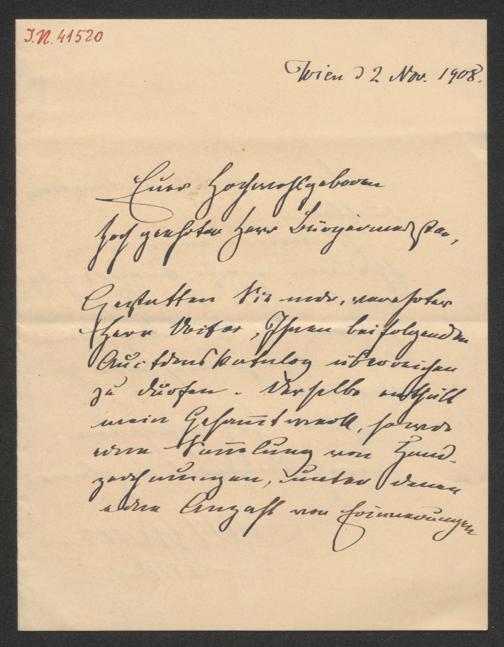 I.N. 41520
Wien d 2 Nov. 1908.
Euer Hochwohlgeboren
hoch geehrter Herr Bürgermeister,
Gestatten Sie mir, verehrter
Herr , Ihnen beifolgenden
Auctionskatalog überreichen
zu dürfen. Derselbe enthält
mein Gesamtwerk, sowie
eine Sammlung von Hand-
zeichnungen, unter denen
eine Anzahl von Erinnerungen